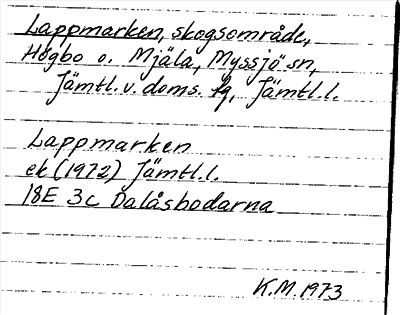 Lappmarken, skogsområde,
Högbo o. Mjäla, Myssjö sn,
Jämtl. v. doms. fg, Jämtl. l.
Lappmarken
ek (1972) Jämtl. l.
18E 3c Dalåsbodarna
K.M. 1973